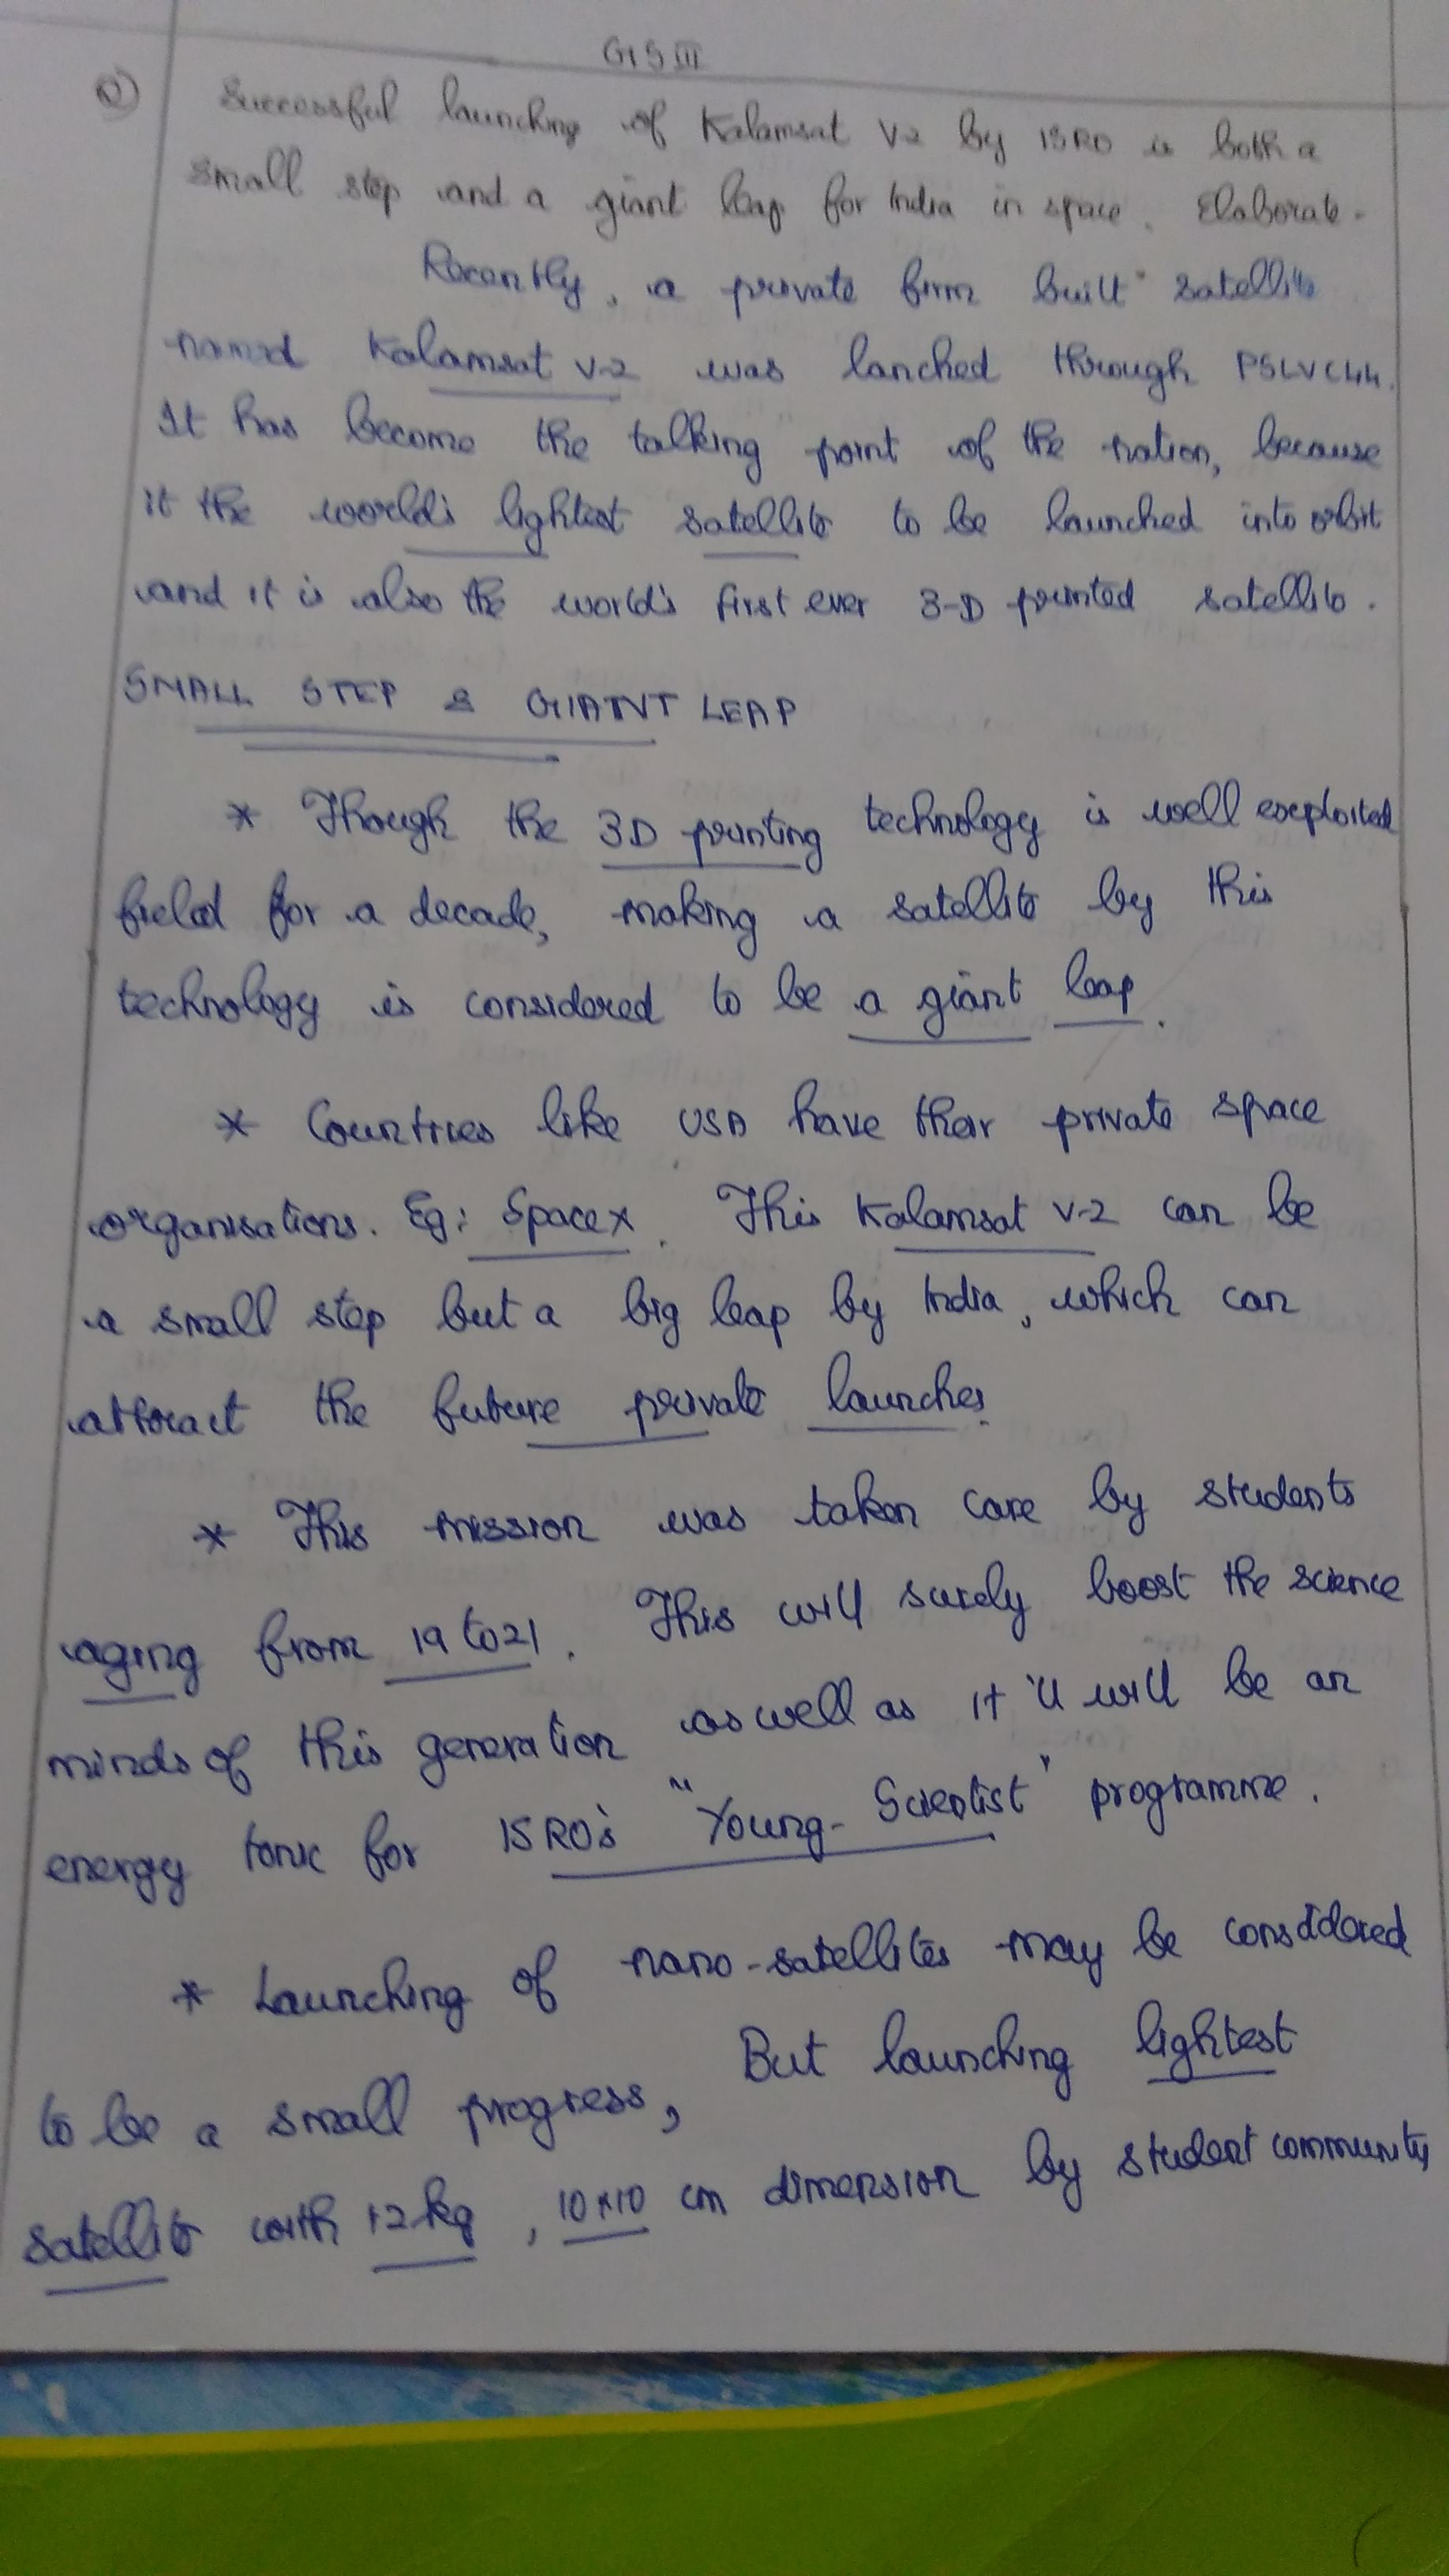 GS III
Q) Successful launching of Kalamsat V2 by ISRO is both a
small step and a giant leap for India in space. Elaborate.
Recently, a private firm built satellite
named Kalamsat V-2 was lanched through PSLVC44.
It has become the talking point of the nation, because
it the world's lightest satellite to be launched into orbit
and it is also the world's first ever 3-D printed satellite.
SMALL STEP & GIANT LEAP
* Though the 3D printing technology is well exploited
field for a decade, making a satellite by this
technology is considered to be a giant leap.
* Countries like USA have their private space
organisations. Eg: SpaceX. This Kalamsat V-2 can be
a small step but a big leap by India, which can
attract the future private launches.
* This mission was taken care by students
aging from 19 to 21. This will surely boost the science
minds of this generation as well as it'll will be an
energy tonic for ISRO's "Young-Scientist" programme.
* Launching of nano-satellites may be considered
to be a small progress, But launching lightest
satellite with 12kg, 10x10 cm dimension by student community